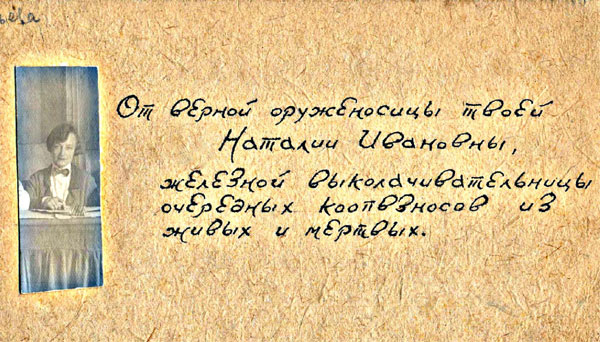 От верной оруженосицы твоей
Наталии Ивановны,
железной выколачивательницы
очередных коопвзносов из
живых и мертвых.